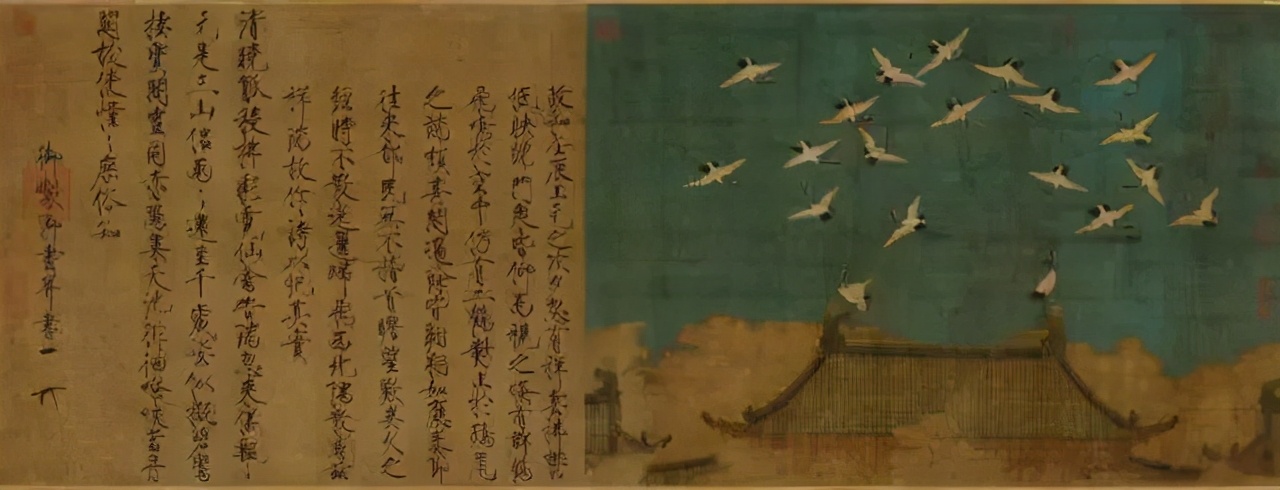 政和壬辰上元之次夕忽有祥雲拂鬱
低映端門眾皆仰而視之倏有群鶴
飛鳴於空中仍有二鶴對止於鴟尾
之端頗甚閑適餘皆翱翔如應奏節
往來都民無不稽首瞻望歎異久之
經時不散迤邐歸飛西北隅散感茲
祥瑞故作詩以紀其實
清曉觚稜拂彩霓仙禽告瑞忽來儀飄〻
元是三山侶兩〻還呈千歲姿似擬碧鸞
棲寶閣豈同赤雁集天池徘徊嘹唳當丹
闕故使憧〻庶俗知
御製御畫并書